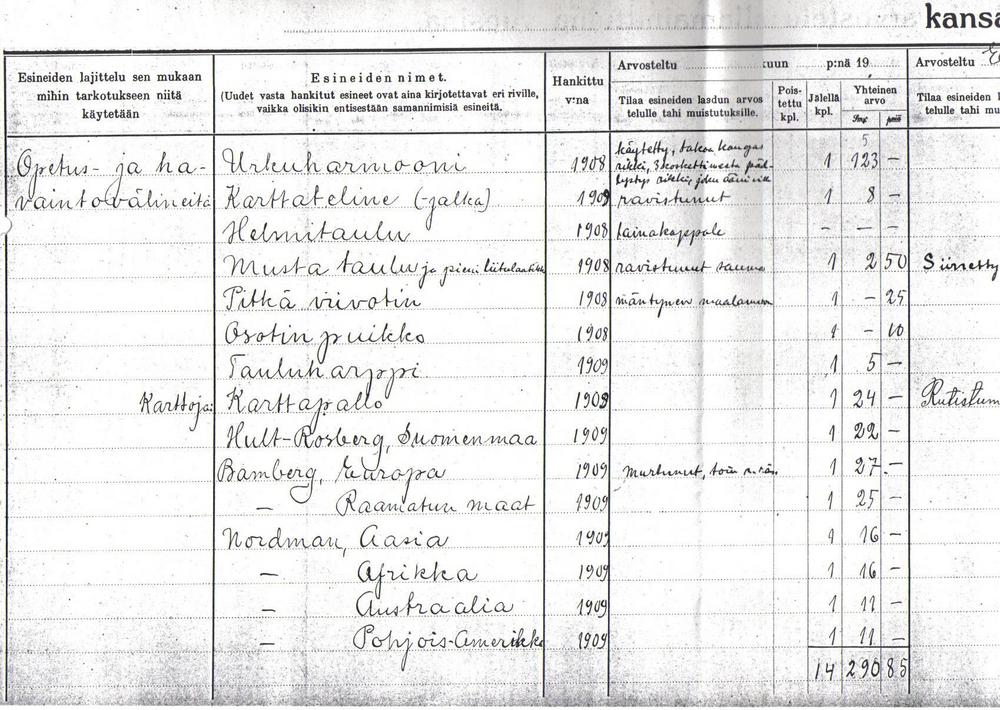 kansa
Esineiden lajittelu sen mukaan mihin tarkotukseen niitä käytetään
Esineiden nimet.
(Uudet vasta hankitut esineet ovat aina kirjotettavat eri riville, vaikka olisikin entisestään samannimisiä esineitä.
Hankittu v:na
Arvosteltu kuun p:nä 19
Tilaa esineiden laadun arvostelulle tahi muistutuksille.
Poistettu kpl.
Jälellä kpl.
Yhteinen arvo
Smk penniä
Arvosteltu
Tilaa esineiden l
telulle tahi mu
Opetus- ja ha- Urkuharmooni 1908 käytetty, takaa kangas rikki, 3 koskettimesta pääl- 1 123 —
vaintovälineitä Karttateline (-jalka) 1909 ravistunut 1 8 —
Helmitaulu 1908 lainakappale — — —
Musta taulu ja pieni liitulaatikko 1908 ravistunut sauma 1 2 50 Siirretty
Pitkä viivotin 1908 mäntynen maalaamaton 1 — 25
Osotin puikko 1908 1 — 10
Tauluharppi 1909 1 5 —
Karttoja: Karttapallo 1909 1 24 — Rutistun
Hult-Rosberg, Suomenmaa 1909 1 22 —
Bamberg, Europa 1909 murtunut, 1 27 —
— Raamatun maat 1909 1 25 —
Nordman, Aasia 1909 1 16 —
— Afrikka 1909 1 16 —
— Austraalia 1909 1 11 —
— Pohjois-Amerikka 1909 1 11 —
14 290 85